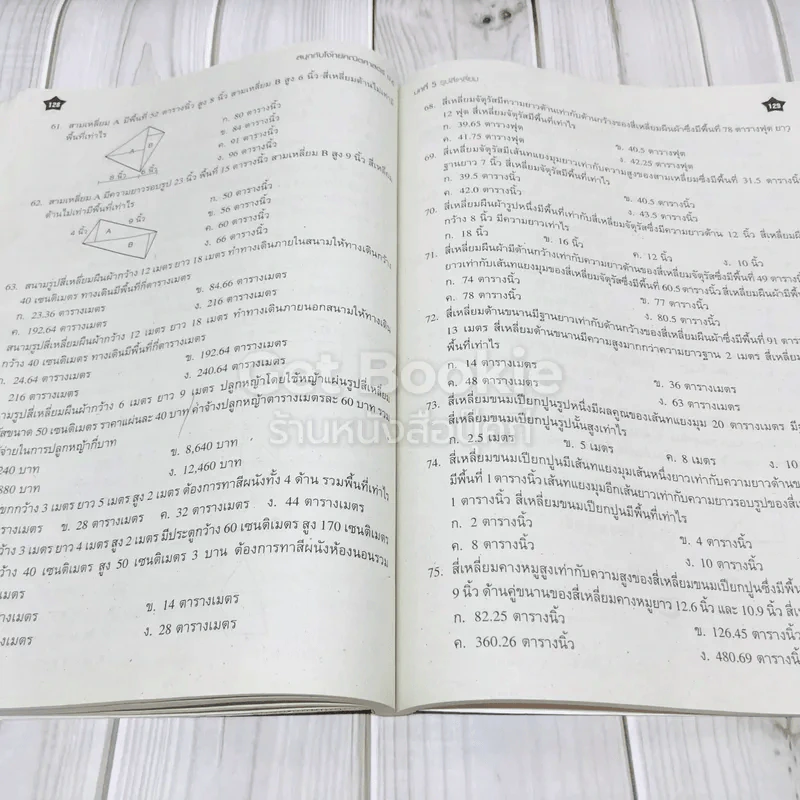 สนุกกับโจทย์คณิตศาสตร์
128
61. สามเหลี่ยม A มีพื้นที่ 52 ตารางนิ้ว สูง 8 นิ้ว สามเหลี่ยม B สูง 6 นิ้ว สี่เหลี่ยมด้านไม่เท่ามี
พื้นที่เท่าไร
ก. 80 ตารางนิ้ว
ข. 84 ตารางนิ้ว
ค. 91 ตารางนิ้ว
ง. 96 ตารางนิ้ว
A
B
8 นิ้ว
6 นิ้ว
62. สามเหลี่ยม A มีความยาวรอบรูป 23 นิ้ว พื้นที่ 15 ตารางนิ้ว สามเหลี่ยม B สูง 9 นิ้ว สี่เหลี่ยม
ด้านไม่เท่ามีพื้นที่เท่าไร
ก. 50 ตารางนิ้ว
ข. 56 ตารางนิ้ว
ค. 60 ตารางนิ้ว
ง. 66 ตารางนิ้ว
4 นิ้ว
9 นิ้ว
A
B
63. สนามรูปสี่เหลี่ยมผืนผ้ากว้าง 12 เมตร ยาว 18 เมตร ทำทางเดินภายในสนามให้ทางเดินกว้าง
40 เซนติเมตร ทางเดินมีพื้นที่กี่ตารางเมตร
ก. 23.36 ตารางเมตร
ข. 84.66 ตารางเมตร
ค. 192.64 ตารางเมตร
ง. 216 ตารางเมตร
สนามรูปสี่เหลี่ยมผืนผ้ากว้าง 12 เมตร ยาว 18 เมตร ทำทางเดินภายนอกสนามให้ทางเดิน
กว้าง 40 เซนติเมตร ทางเดินมีพื้นที่กี่ตารางเมตร
ก. 24.64 ตารางเมตร
ข. 192.64 ตารางเมตร
216 ตารางเมตร
ง. 240.64 ตารางเมตร
ามรูปสี่เหลี่ยมผืนผ้ากว้าง 6 เมตร ยาว 9 เมตร ปลูกหญ้าโดยใช้หญ้าแผ่นรูปสี่เหลี่ยม
ัสขนาด 50 เซนติเมตร ราคาแผ่นละ 40 บาท ค่าจ้างปลูกหญ้าตารางเมตรละ 60 บาท รวม
จ่ายในการปลูกหญ้ากี่บาท
240 บาท
ข. 8,640 บาท
880 บาท
ง. 12,460 บาท
ขกกว้าง 3 เมตร ยาว 5 เมตร สูง 2 เมตร ต้องการทาสีผนังทั้ง 4 ด้าน รวมพื้นที่เท่าไร
รางเมตร ข. 28 ตารางเมตร ค. 32 ตารางเมตร ง. 44 ตารางเมตร
ว้าง 3 เมตร ยาว 4 เมตร สูง 2 เมตร มีประตูกว้าง 60 เซนติเมตร สูง 170 เซนติเมตร
กว้าง 40 เซนติเมตร สูง 50 เซนติเมตร 3 บาน ต้องการทาสีผนังห้องนอนรวม
างเมตร
ข. 14 ตารางเมตร
รางเมตร
ง. 28 ตารางเมตร
บทที่ 5 รูปสี่เหลี่ยม
129
68. สี่เหลี่ยมจัตุรัสมีความยาวด้านเท่ากับด้านกว้างของสี่เหลี่ยมผืนผ้าซึ่งมีพื้นที่ 78 ตารางฟุต ยาว
12 ฟุต สี่เหลี่ยมจัตุรัสมีพื้นที่เท่าไร
ก. 39.65 ตารางฟุต
ข. 40.5 ตารางฟุต
ค. 41.75 ตารางฟุต
ง. 42.25 ตารางฟุต
69. สี่เหลี่ยมจัตุรัสมีเส้นทแยงมุมยาวเท่ากับความสูงของสามเหลี่ยมซึ่งมีพื้นที่ 31.5 ตารางนิ้ว
ฐานยาว 7 นิ้ว สี่เหลี่ยมจัตุรัสมีพื้นที่เท่าไร
ก. 39.5 ตารางนิ้ว
ข. 40.5 ตารางนิ้ว
ค. 42.0 ตารางนิ้ว
ง. 43.5 ตารางนิ้ว
70. สี่เหลี่ยมผืนผ้ารูปหนึ่งมีพื้นที่เท่ากับสี่เหลี่ยมจัตุรัสซึ่งมีความยาวด้าน 12 นิ้ว สี่เหลี่ยมผืน
กว้าง 8 นิ้ว มีความยาวเท่าไร
ก. 18 นิ้ว
ข. 16 นิ้ว
ค. 12 นิ้ว
ง. 10 นิ้ว
71. สี่เหลี่ยมผืนผ้ามีด้านกว้างเท่ากับความยาวด้านของสี่เหลี่ยมจัตุรัสซึ่งมีพื้นที่ 49 ตารางนิ้ว
ยาวเท่ากับเส้นทแยงมุมของสี่เหลี่ยมจัตุรัสซึ่งมีพื้นที่ 60.5 ตารางนิ้ว สี่เหลี่ยมผืนผ้ามีพื้นที่
ก. 74 ตารางนิ้ว
ข. 77 ตารางนิ้ว
ค. 78 ตารางนิ้ว
ง. 80.5 ตารางนิ้ว
72. สี่เหลี่ยมด้านขนานมีฐานยาวเท่ากับด้านกว้างของสี่เหลี่ยมผืนผ้าซึ่งมีพื้นที่ 91 ตาราง
13 เมตร สี่เหลี่ยมด้านขนานมีความสูงมากกว่าความยาวฐาน 2 เมตร สี่เหลี่ยม
พื้นที่เท่าไร
ก. 14 ตารางเมตร
ข. 36 ตารางเมตร
ค. 48 ตารางเมตร
ง. 63 ตารางเมตร
73. สี่เหลี่ยมขนมเปียกปูนรูปหนึ่งมีผลคูณของเส้นทแยงมุม 20 ตารางเมตร มี
สี่เหลี่ยมขนมเปียกปูนรูปนั้นสูงเท่าไร
ก. 2.5 เมตร
ข. 5 เมตร
ค. 8 เมตร
ง. 10
74. สี่เหลี่ยมขนมเปียกปูนมีเส้นทแยงมุมเส้นหนึ่งยาวเท่ากับความยาวด้านของ
มีพื้นที่ 1 ตารางนิ้ว เส้นทแยงมุมอีกเส้นยาวเท่ากับความยาวรอบรูปของสี่เหลี่
1 ตารางนิ้ว สี่เหลี่ยมขนมเปียกปูนมีพื้นที่เท่าไร
ก. 2 ตารางนิ้ว
ข. 4 ตารางนิ้ว
ค. 8 ตารางนิ้ว
ง. 10 ตารางนิ้ว
75. สี่เหลี่ยมคางหมูสูงเท่ากับความสูงของสี่เหลี่ยมขนมเปียกปูนซึ่งมีพื้นที่
9 นิ้ว ด้านคู่ขนานของสี่เหลี่ยมคางหมูยาว 12.6 นิ้ว และ 10.9 นิ้ว สี่เห
ก. 82.25 ตารางนิ้ว
ข. 126.45 ตารางนิ้ว
ค. 360.26 ตารางนิ้ว
ง. 480.69 ตารางนิ้ว
Get Bookie